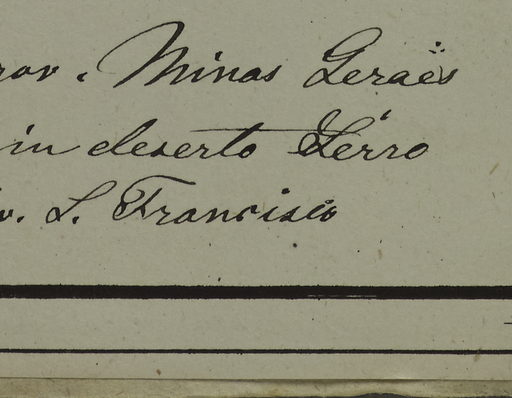 rov. Minas Geraës
in deserto Serro
v. S. Francisco